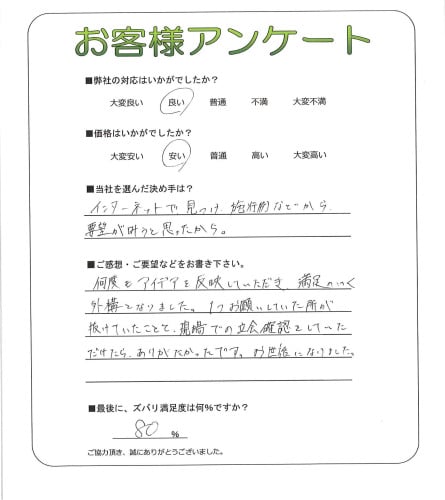 お客様アンケート
■弊社の対応はいかがでしたか？
大変良い 良い 普通 不満 大変不満
■価格はいかがでしたか？
大変安い 安い 普通 高い 大変高い
■当社を選んだ決め手は？
インターネットで見つけ、施行例などから、
要望が叶うと思ったから。
■ご感想・ご要望などをお書き下さい。
何度もアイデアを反映していただき、満足のいく
外構となりました。1つお願いしていた所が
抜けていたことと、現場での立会確認をしていた
だけたら、ありがたかったです。お世話になりました。
■最後に、ズバリ満足度は何％ですか？
80 ％
ご協力頂き、誠にありがとうございました。